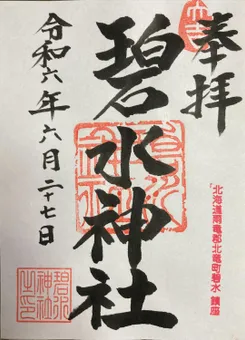 奉拝
碧水神社
令和六年六月二十七日
北海道雨竜郡北竜町碧水 鎮座
碧水
神社
之印